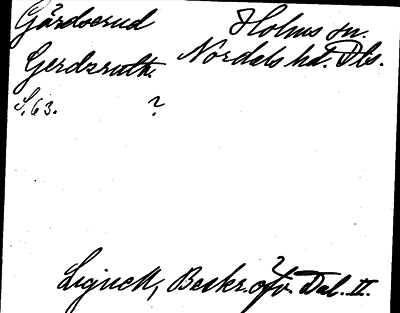 Gårdserud
Holms sn.
Gerdzruth.
Nordals hd. Dls.
S. 63. ?
Lignell, Beskr. öfv. Dal. II.